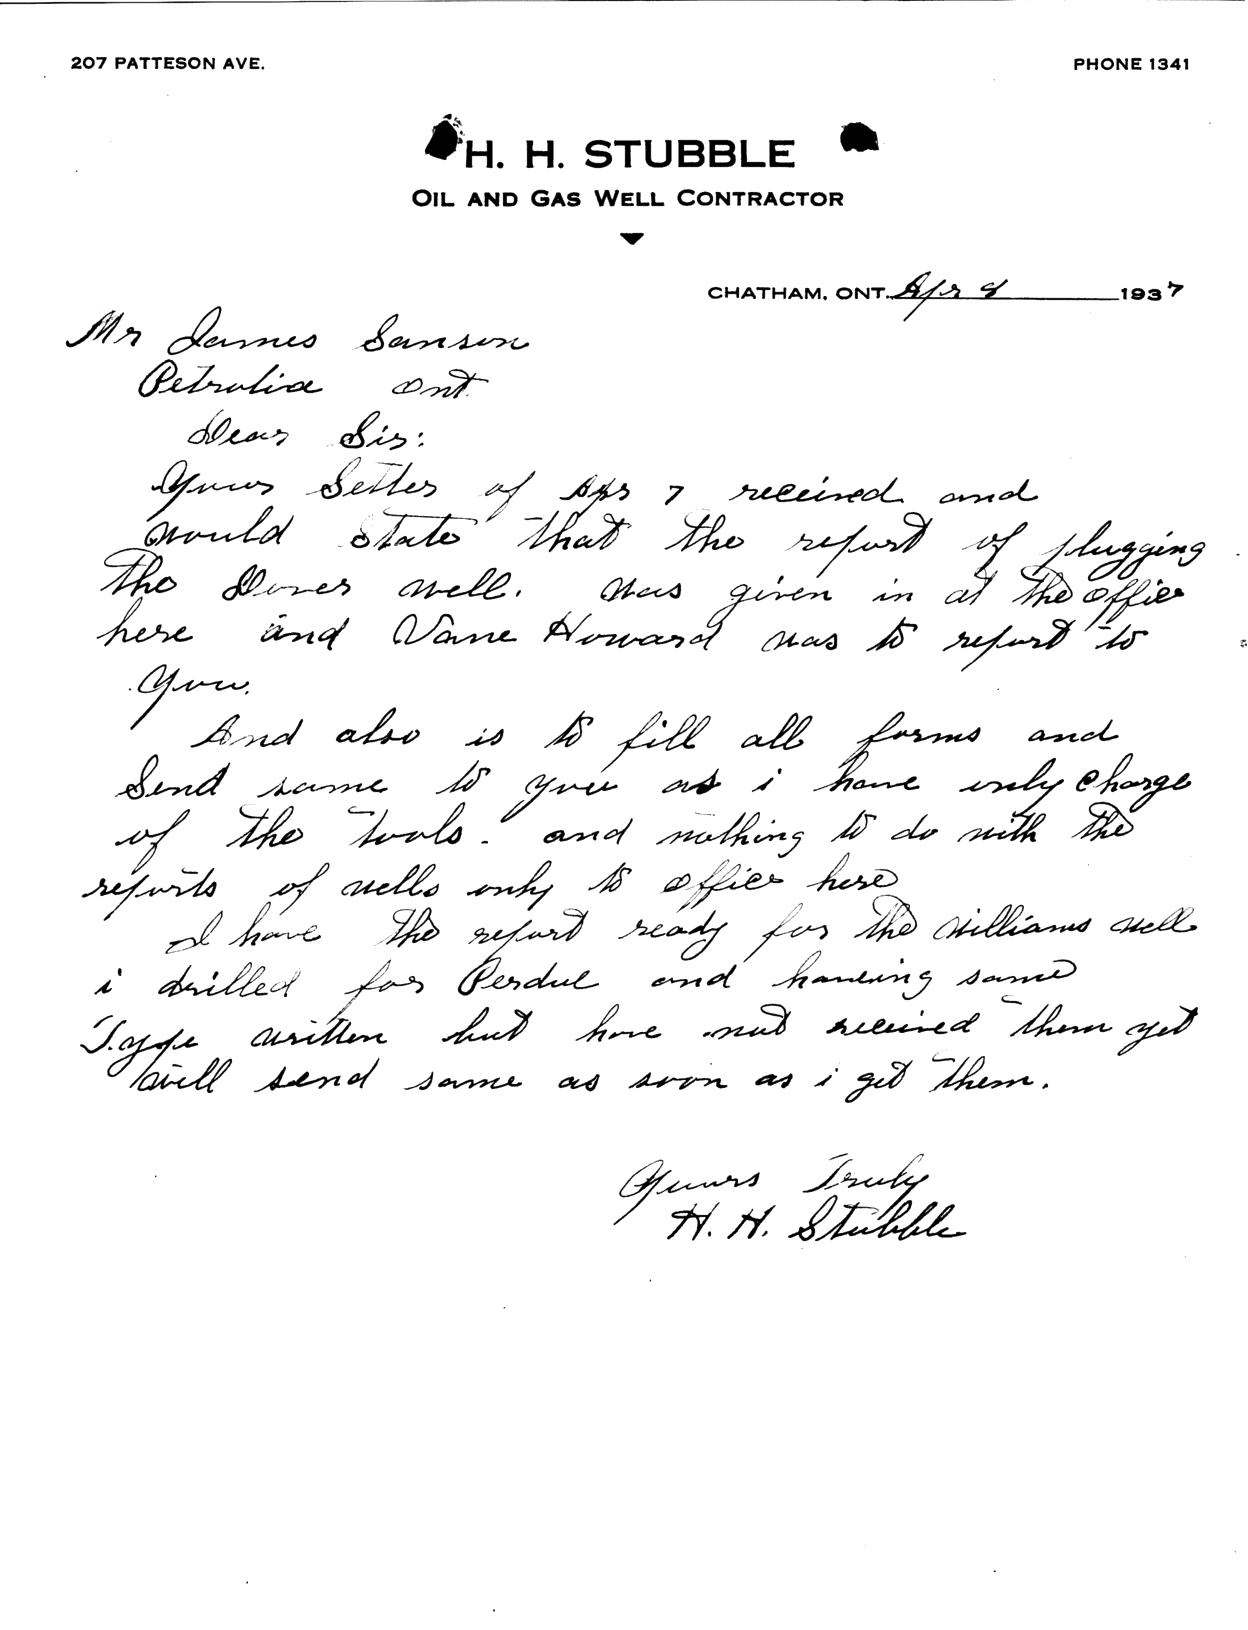 207 PATTESON AVE.
PHONE 1341
H. H. STUBBLE
OIL AND GAS WELL CONTRACTOR
CHATHAM, ONT. Apr 8 1937
Mr James Sanson
Petrolia Ont
Dear Sir:
Your Letter of Apr 7 received and
would state that the report of plugging
the Dover well. was given in at the office
here and Vane Howard was to report to
you.
And also is to fill all forms and
Send same to you as i have only charge
of the tools. and nothing to do with the
reports of wells only to office here
I have the report ready for the Williams well
i drilled for Perdue and haveing same
Type written but have not received them yet
will send same as soon as i get them.
Yours Truly
H. H. Stubble